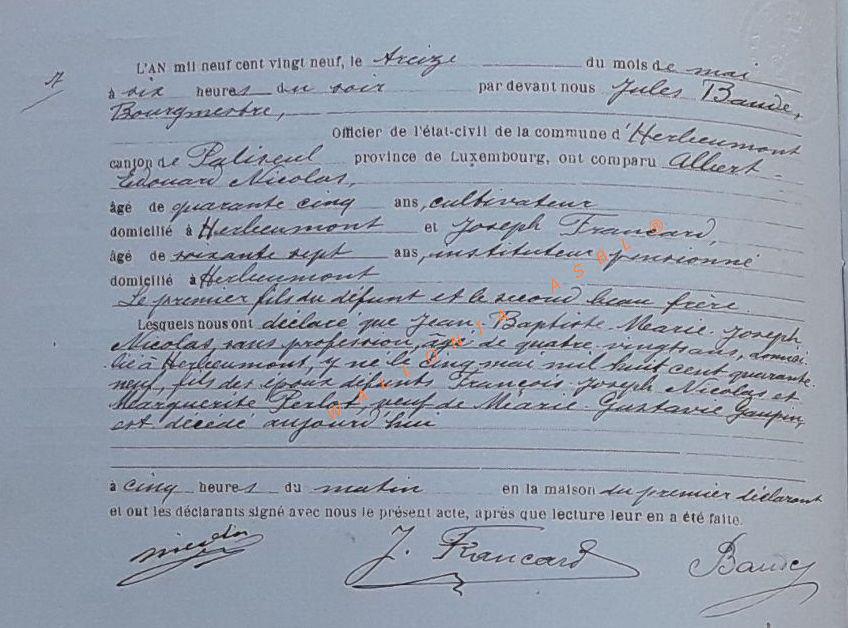 7
L'AN mil neuf cent vingt neuf, le treize du mois de mai
à six heures du soir par devant nous Jules Baude,
Bourgmestre,
Officier de l'état-civil de la commune d'Herbeumont
canton de Paliseul province de Luxembourg, ont comparu Albert-
Edouard Nicolas,
âgé de quarante cinq ans, cultivateur
domicilié à Herbeumont et Joseph Francard,
âgé de soixante sept ans, instituteur pensionné
domicilié à Herbeumont
Le premier fils du défunt et le second beau frère.
Lesquels nous ont déclaré que Jean-Baptiste-Marie-Joseph
Nicolas, sans profession, agé de quatre vingts ans, domici
lié à Herbeumont, y né le cinq mai mil huit cent quarante
neuf, fils des époux défunts François-Joseph Nicolas et
Marguerite Perlot, veuf de Marie-Gustavie
est décédé aujourd'hui
à cinq heures du matin en la maison du premier déclarant
et ont les déclarants signé avec nous le présent acte, après que lecture leur en a été faite.
J. Francard
WALLONIA ASBL ©